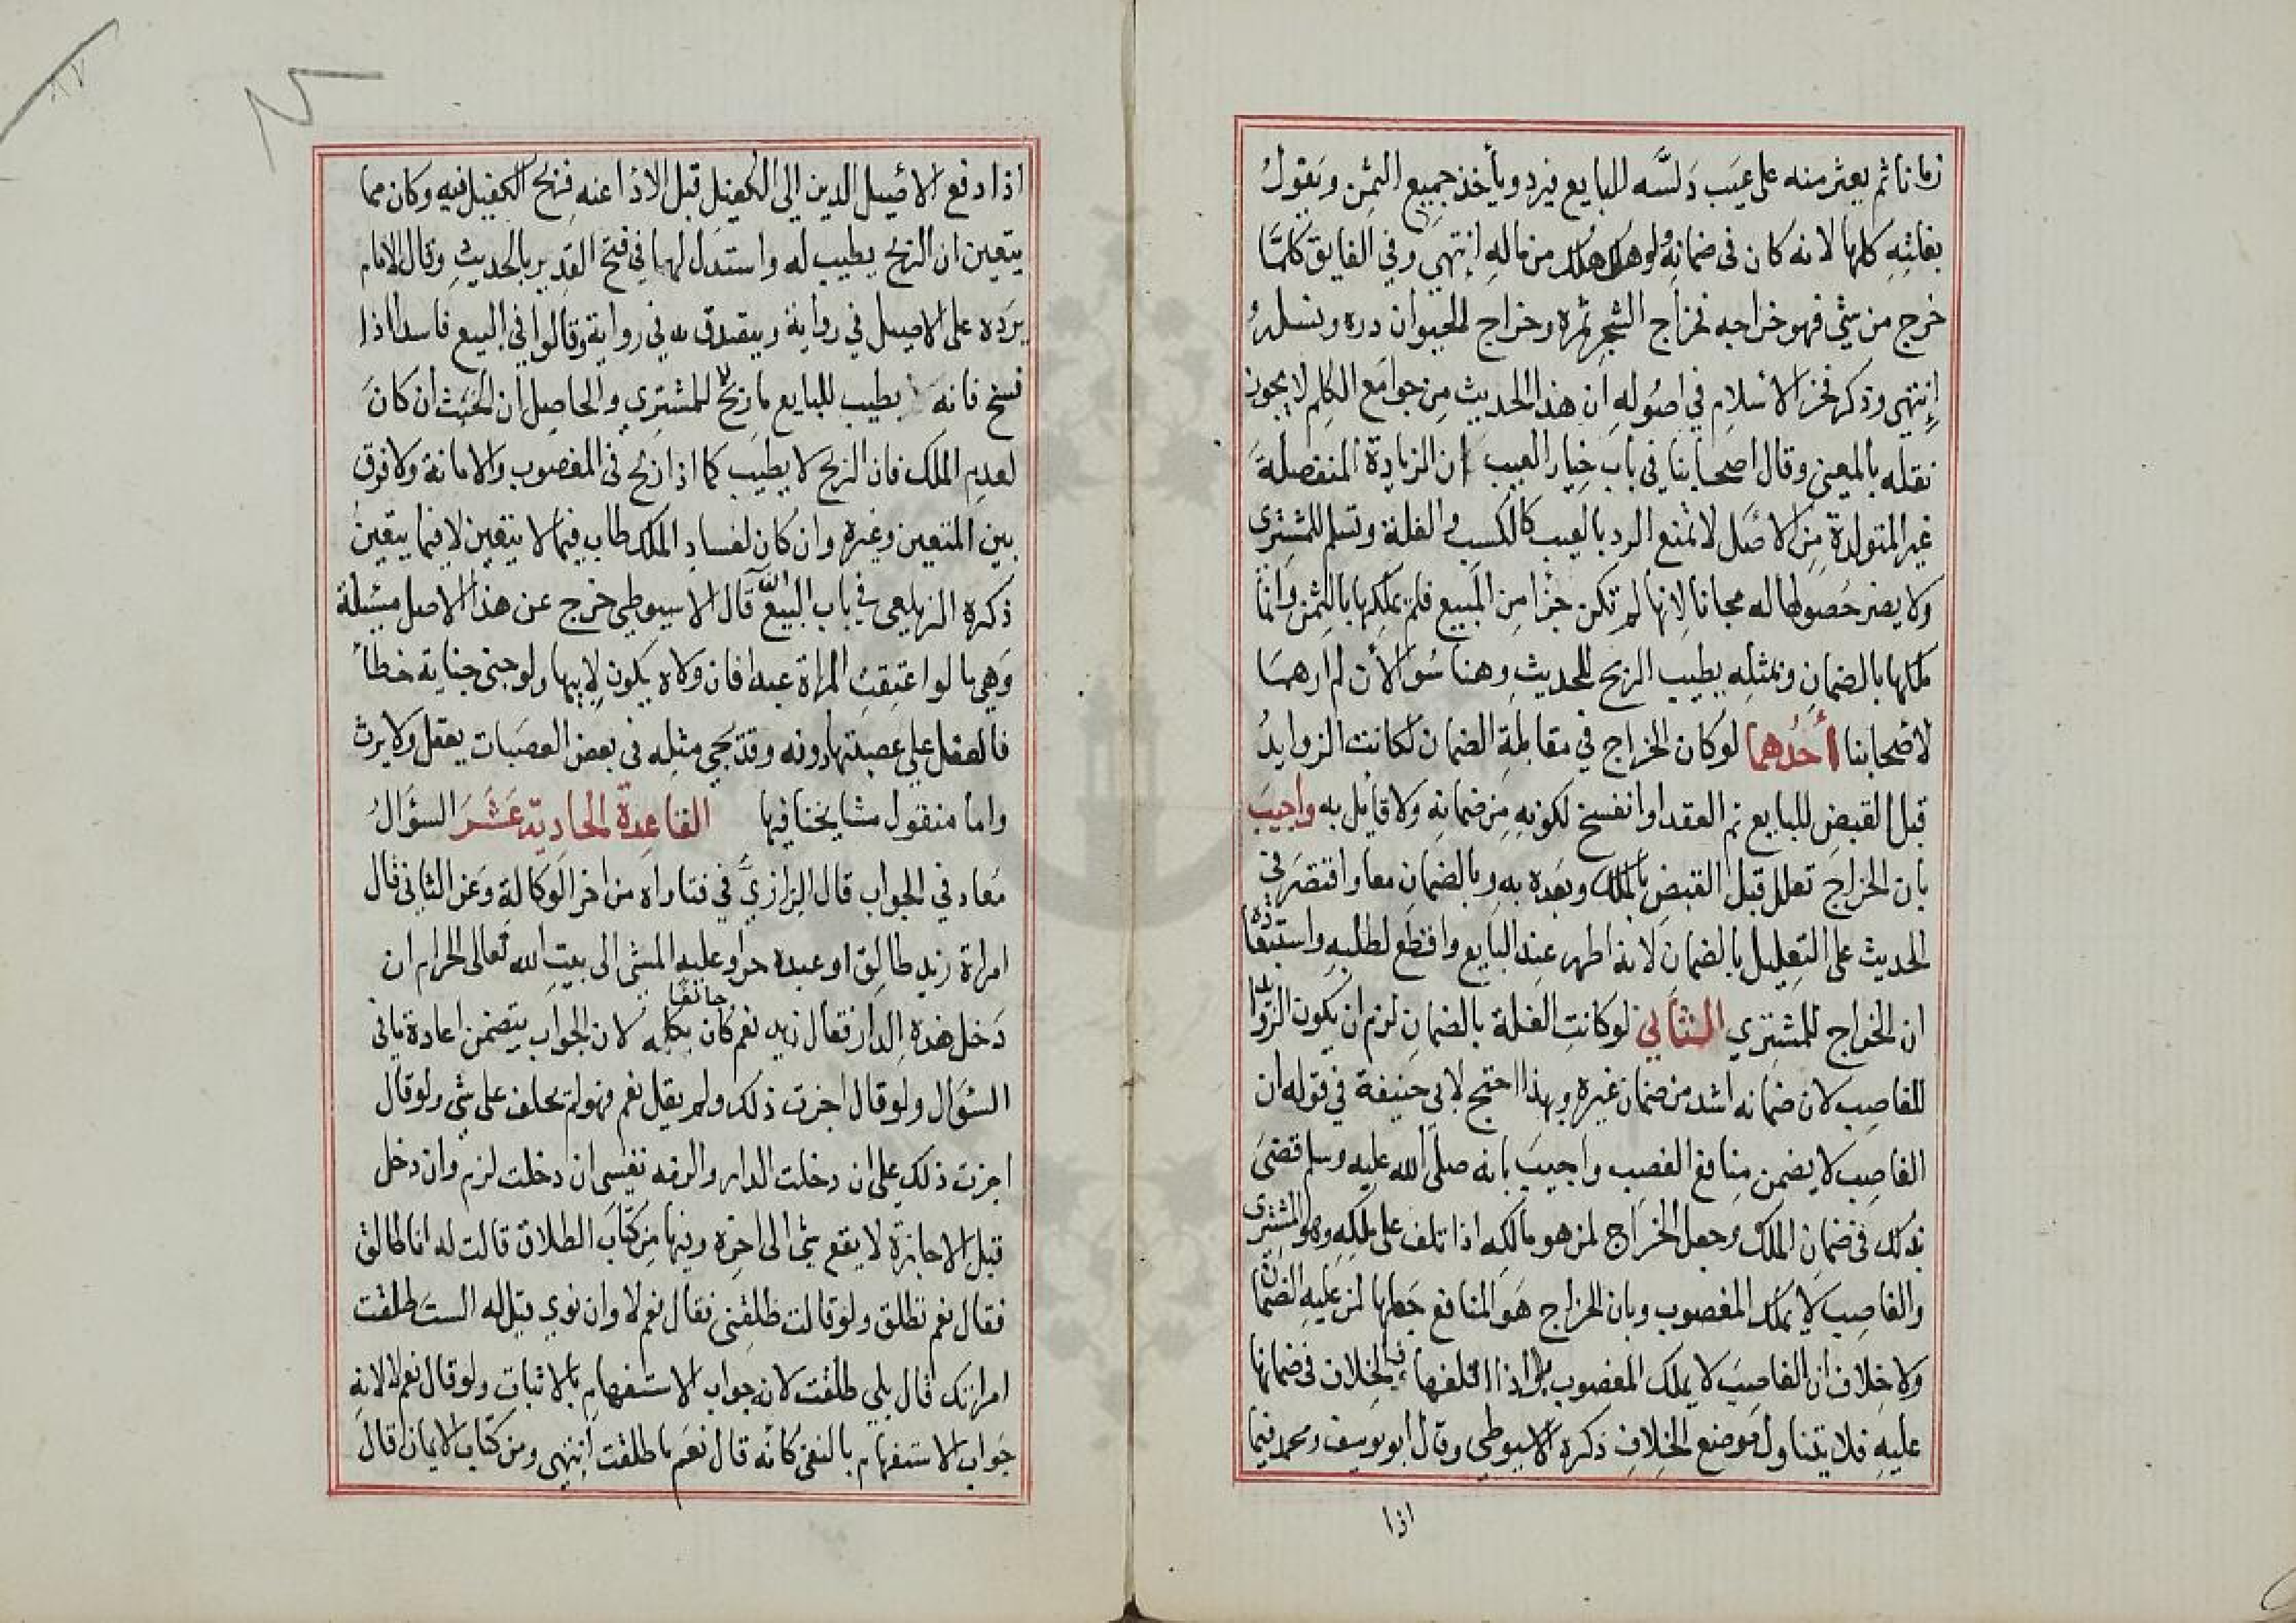 زمانا ثم يعثر منه على عيب دلسه البايع فيرد ويأخذ جميع الثمن ويفوز
بغلته كلها لانه كان فى ضمانه ولو هلك هلك من ماله انتهى وفي الفايق كلما
خرج من شئ فهو خراجه فخراج الشجر ثمره وخراج الحيوان دره ونسله
انتهى وذكر فخر الاسلام في اصوله ان هذا الحديث من جوامع الكلم لا يجوز
نقله بالمعنى وقال اصحابنا في باب خيار العيب ان الزيادة المنفصلة
غير المتولدة من الاصل لا تمنع الرد بالعيب كالكسب والغلة وتسلم للمشترى
ولا يضر حصولها له مجانا لانها لم تكن جزأ من المبيع فلم يملكها بالثمن وانما
ملكها بالضمان وبمثله يطيب الربح للحديث وهنا سؤالان لم ارهما
لاصحابنا أحدهما لو كان الخراج في مقابلة الضمان لكانت الزوايد
قبل القبض للبايع تم العقد او انفسخ لكونه من ضمانه ولا قايل به واجيب
بان الخراج تعلل قبل القبض بالملك وبعده به وبالضمان معا واقتصر في
الحديث على التعليل بالضمان لانه اظهر عند البايع واقطع لطلبه واستبعاده
ان الخراج للمشتري الثاني لو كانت الغلة بالضمان لزم ان يكون الزوايد
للغاصب لان ضمانه اشد من ضمان غيره وبهذا احتج لابي حنيفة في قوله ان
الغاصب لا يضمن منافع الغصب واجيب بانه صلى الله عليه وسلم قضى
بذلك فى ضمان الملك وجعل الخراج لمن هو مالكه اذا تلف على ملكه وهو المشترى
والغاصب لا يملك المغصوب وبان الخراج هو المنافع جعلها لمن عليه الضمان
ولا خلاف ان الغاصب لا يملك المغصوب بل اذا اتلفها فالخلاف فى ضمانها
عليه فلا يتناول موضع الخلاف ذكره الاسيوطي وقال ابو يوسف ومحمد فيما
اذا
اذا دفع الاصيل الدين الى الكفيل قبل الاداء عنه فربح الكفيل فيه وكان مما
يتعين ان الربح يطيب له واستدل لهما في فتح القدير بالحديث وقال الامام
يرده على الاصيل في رواية ويتصدق به في رواية وقالوا في البيع فاسدا اذا
فسخ فانه يطيب للبايع ما ربح لا للمشتري والحاصل ان الخبث ان كان
لعدم الملك فان الربح لا يطيب كما اذا ربح فى المغصوب والامانة ولا فرق
بين المتعين وغيره وان كان لفساد الملك طاب فيما لا يتعين لا فيما يتعين
ذكره الزيلعى في باب البيع الفاسد قال الاسيوطي خرج عن هذا الاصل مسئلة
وهي ما لو اعتقت المراة عبدا فان ولاه يكون لابيها ولو جنى جناية خطأ
فالعقل على عصبتها دونه وقد يجي مثله فى بعض العصبات يعقل ولا يرث
واما منقول مشايخنا فيها القاعدة الحادية عشر السؤال
معاد في الجواب قال البزازي في فتاواه من اخر الوكالة وعن الثانى قال
امراة زيد طالق او عبده حر او عليه المشى الى بيت الله تعالى الحرام ان
دخل هذه الدار فقال زيد نعم كان حالفا بكله لان الجواب يتضمن اعادة ما فى
السؤال ولو قال اجزت ذلك ولم يقل نعم فهو لم يحلف على شئ ولو قال
اجزت ذلك على ان دخلت الدار والزمه نفسى ان دخلت لزم وان دخل
قبل الاجازة لا يقع شئ الى اخره وفيها من كتاب الطلاق قالت له انا طالق
فقال نعم تطلق ولو قالت طلقنى فقال نعم لا وان نوى قيل له الست طلقت
امراتك قال بلى طلقت لانه جواب الاستفهام بالاثبات ولو قال نعم لا لانه
جواب الاستفهام بالنفى كانه قال نعم ما طلقت انتهى ومن كتاب الايمان قال